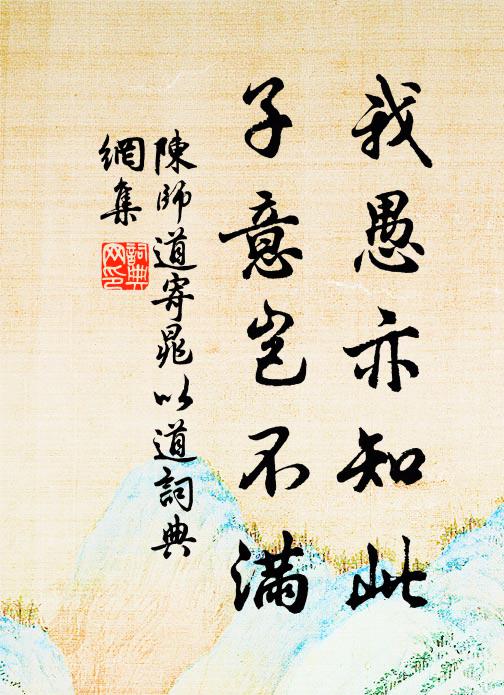 我愚亦知此
子意岂不滿
陳師道寄晁以道詞典
網集
詞典
网印